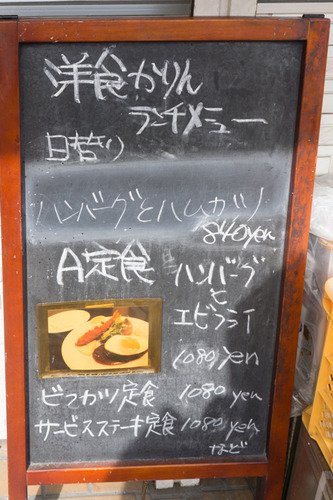 洋食かりん
ランチメニュー
日替り
ハンバーグとハムカツ
840yen
A定食
ハンバーグ
と
エビフライ
1080yen
ビフカツ定食 1080yen
サービスステーキ定食 1080yen
など